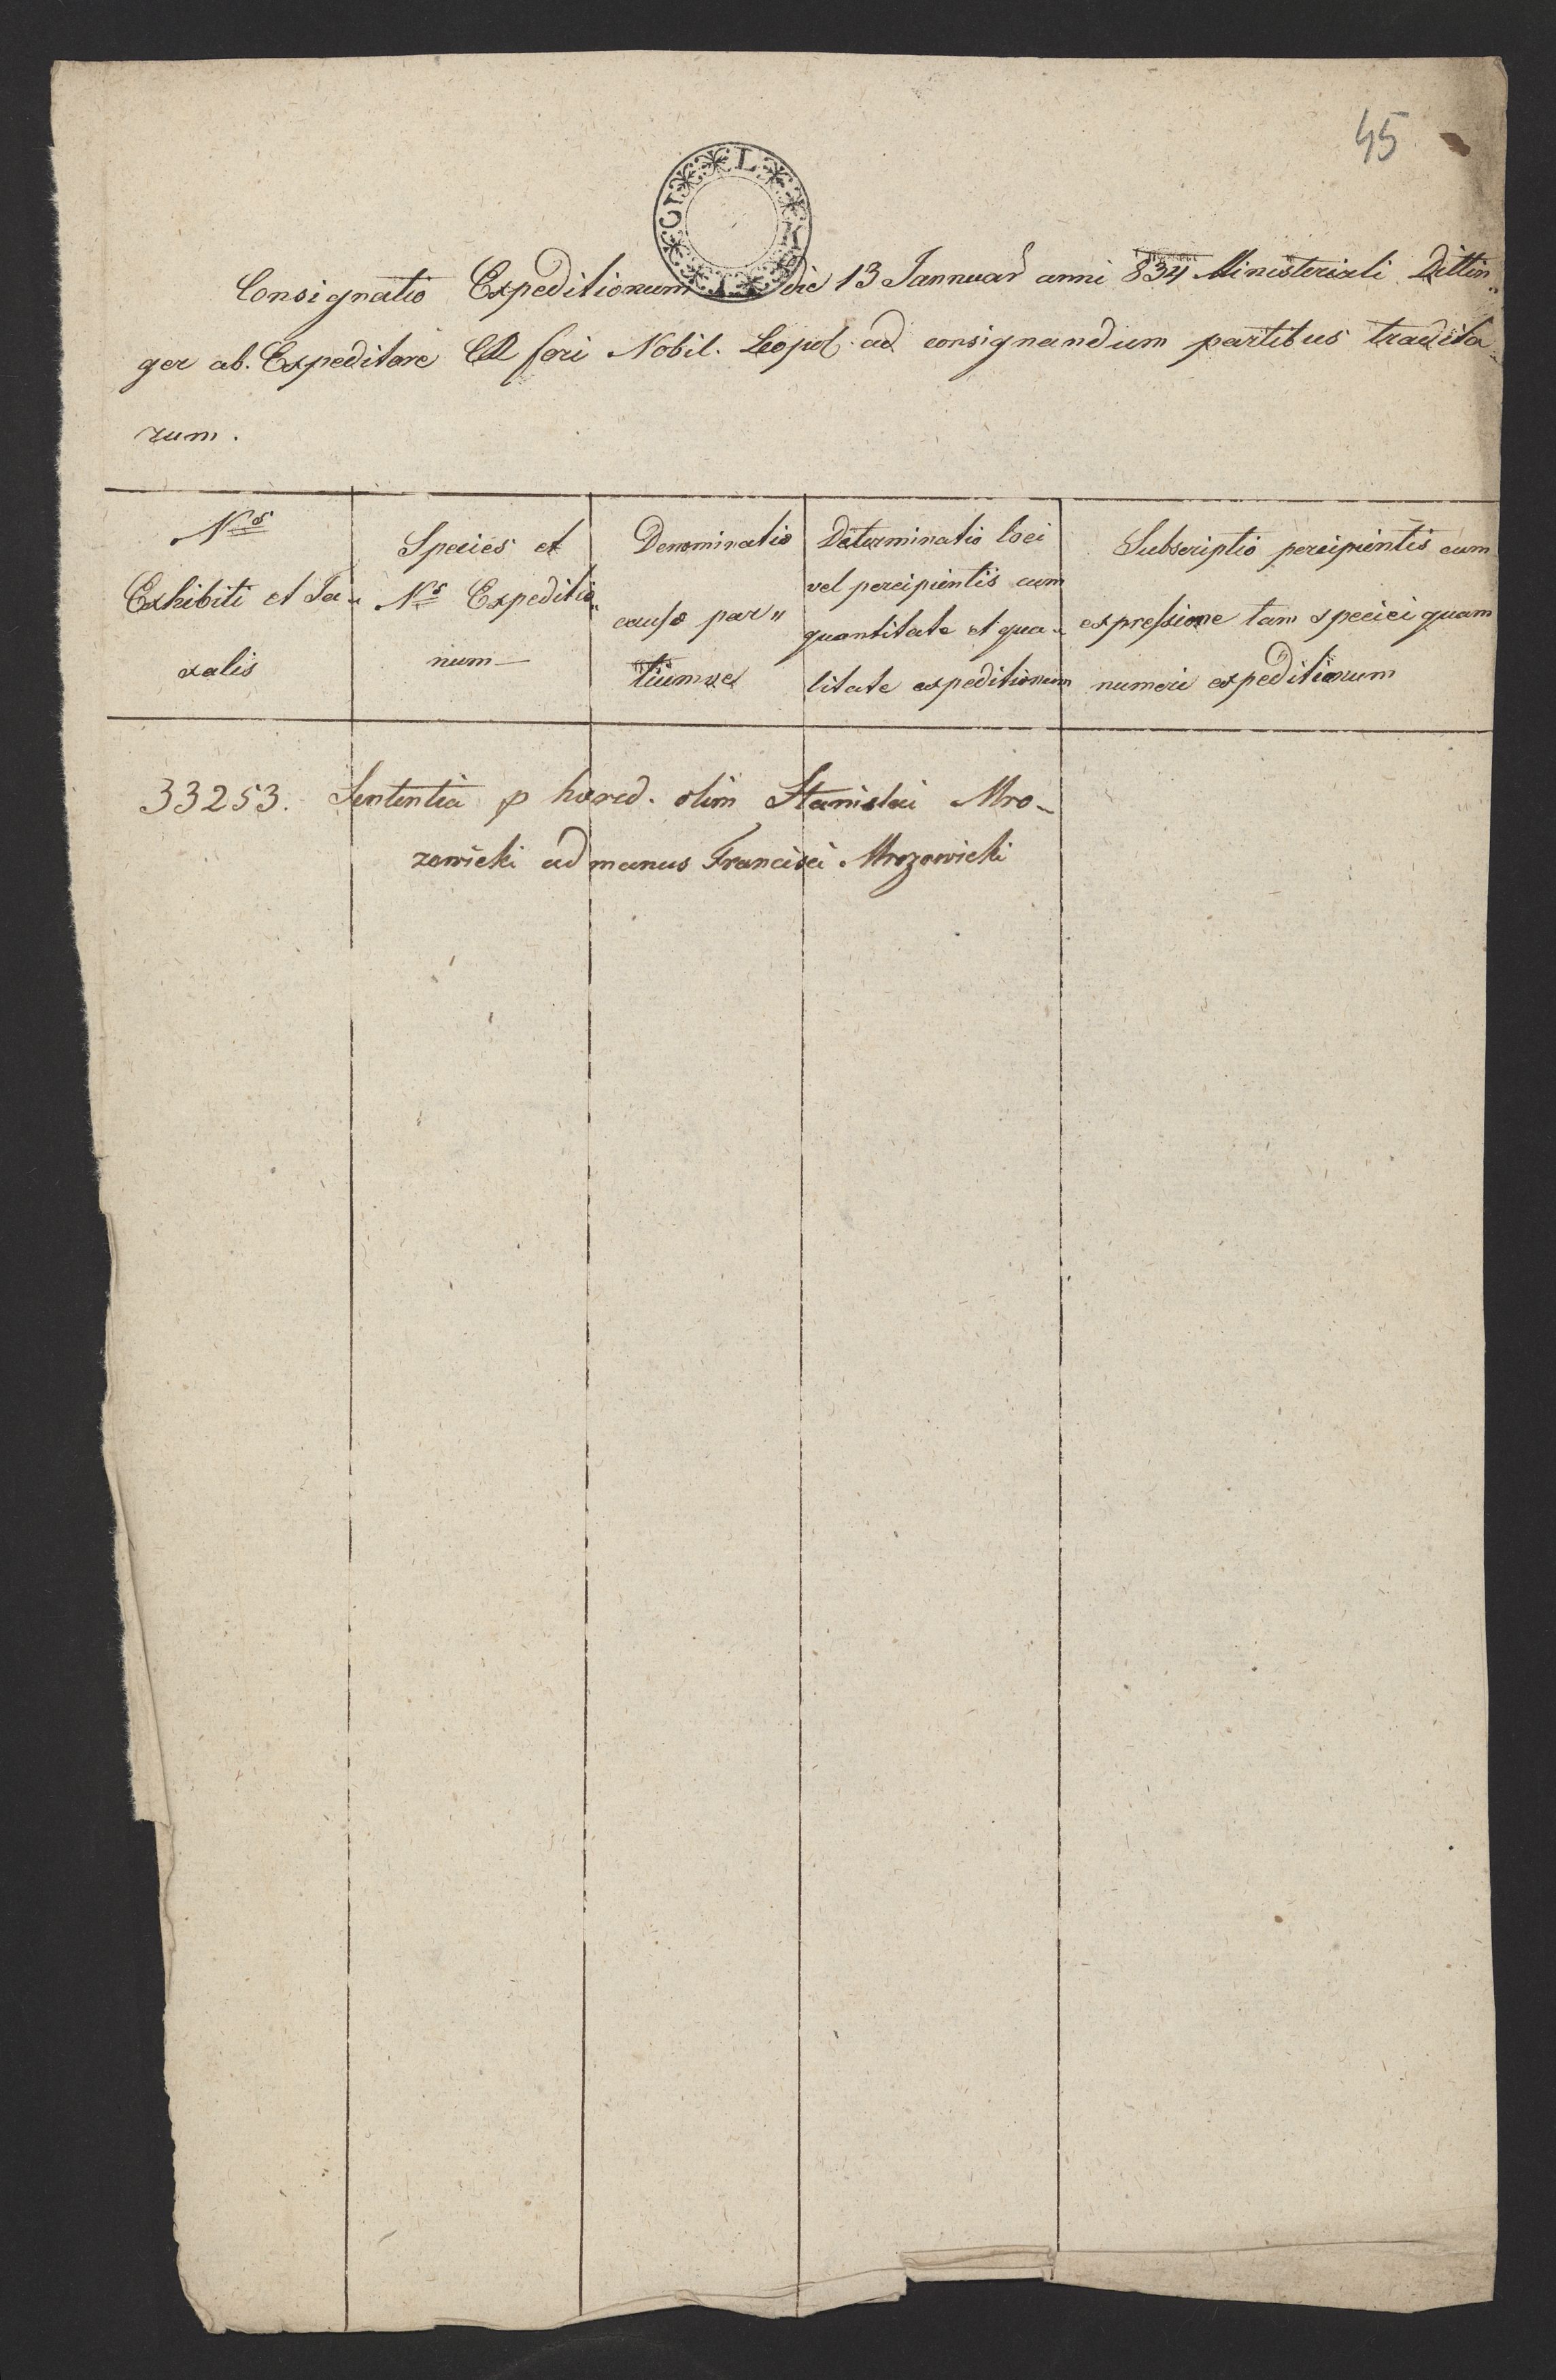 45
Consignatio Expeditionum die 13 Jannuar anni 834 Ministeriali Dittin„
ger ab. Expeditore CR fori Nobil. Leopol. ad consignandum partibus tradita„
rum.
Nrs
Exhibiti et Ta„
xalis
Species et
Nrs Expeditio„
num
Denominatio
causæ par„
tiumve
Determinatio loci
vel percipientis cum
quantitate et qua„
litate expeditionum
Subscriptio percipientis cum
expressione tam speciei quam
numeri expeditionum
33253. Sententia p hæred. olim Stanislai Mro-
zowicki ad manus Francisci Mrozowicki